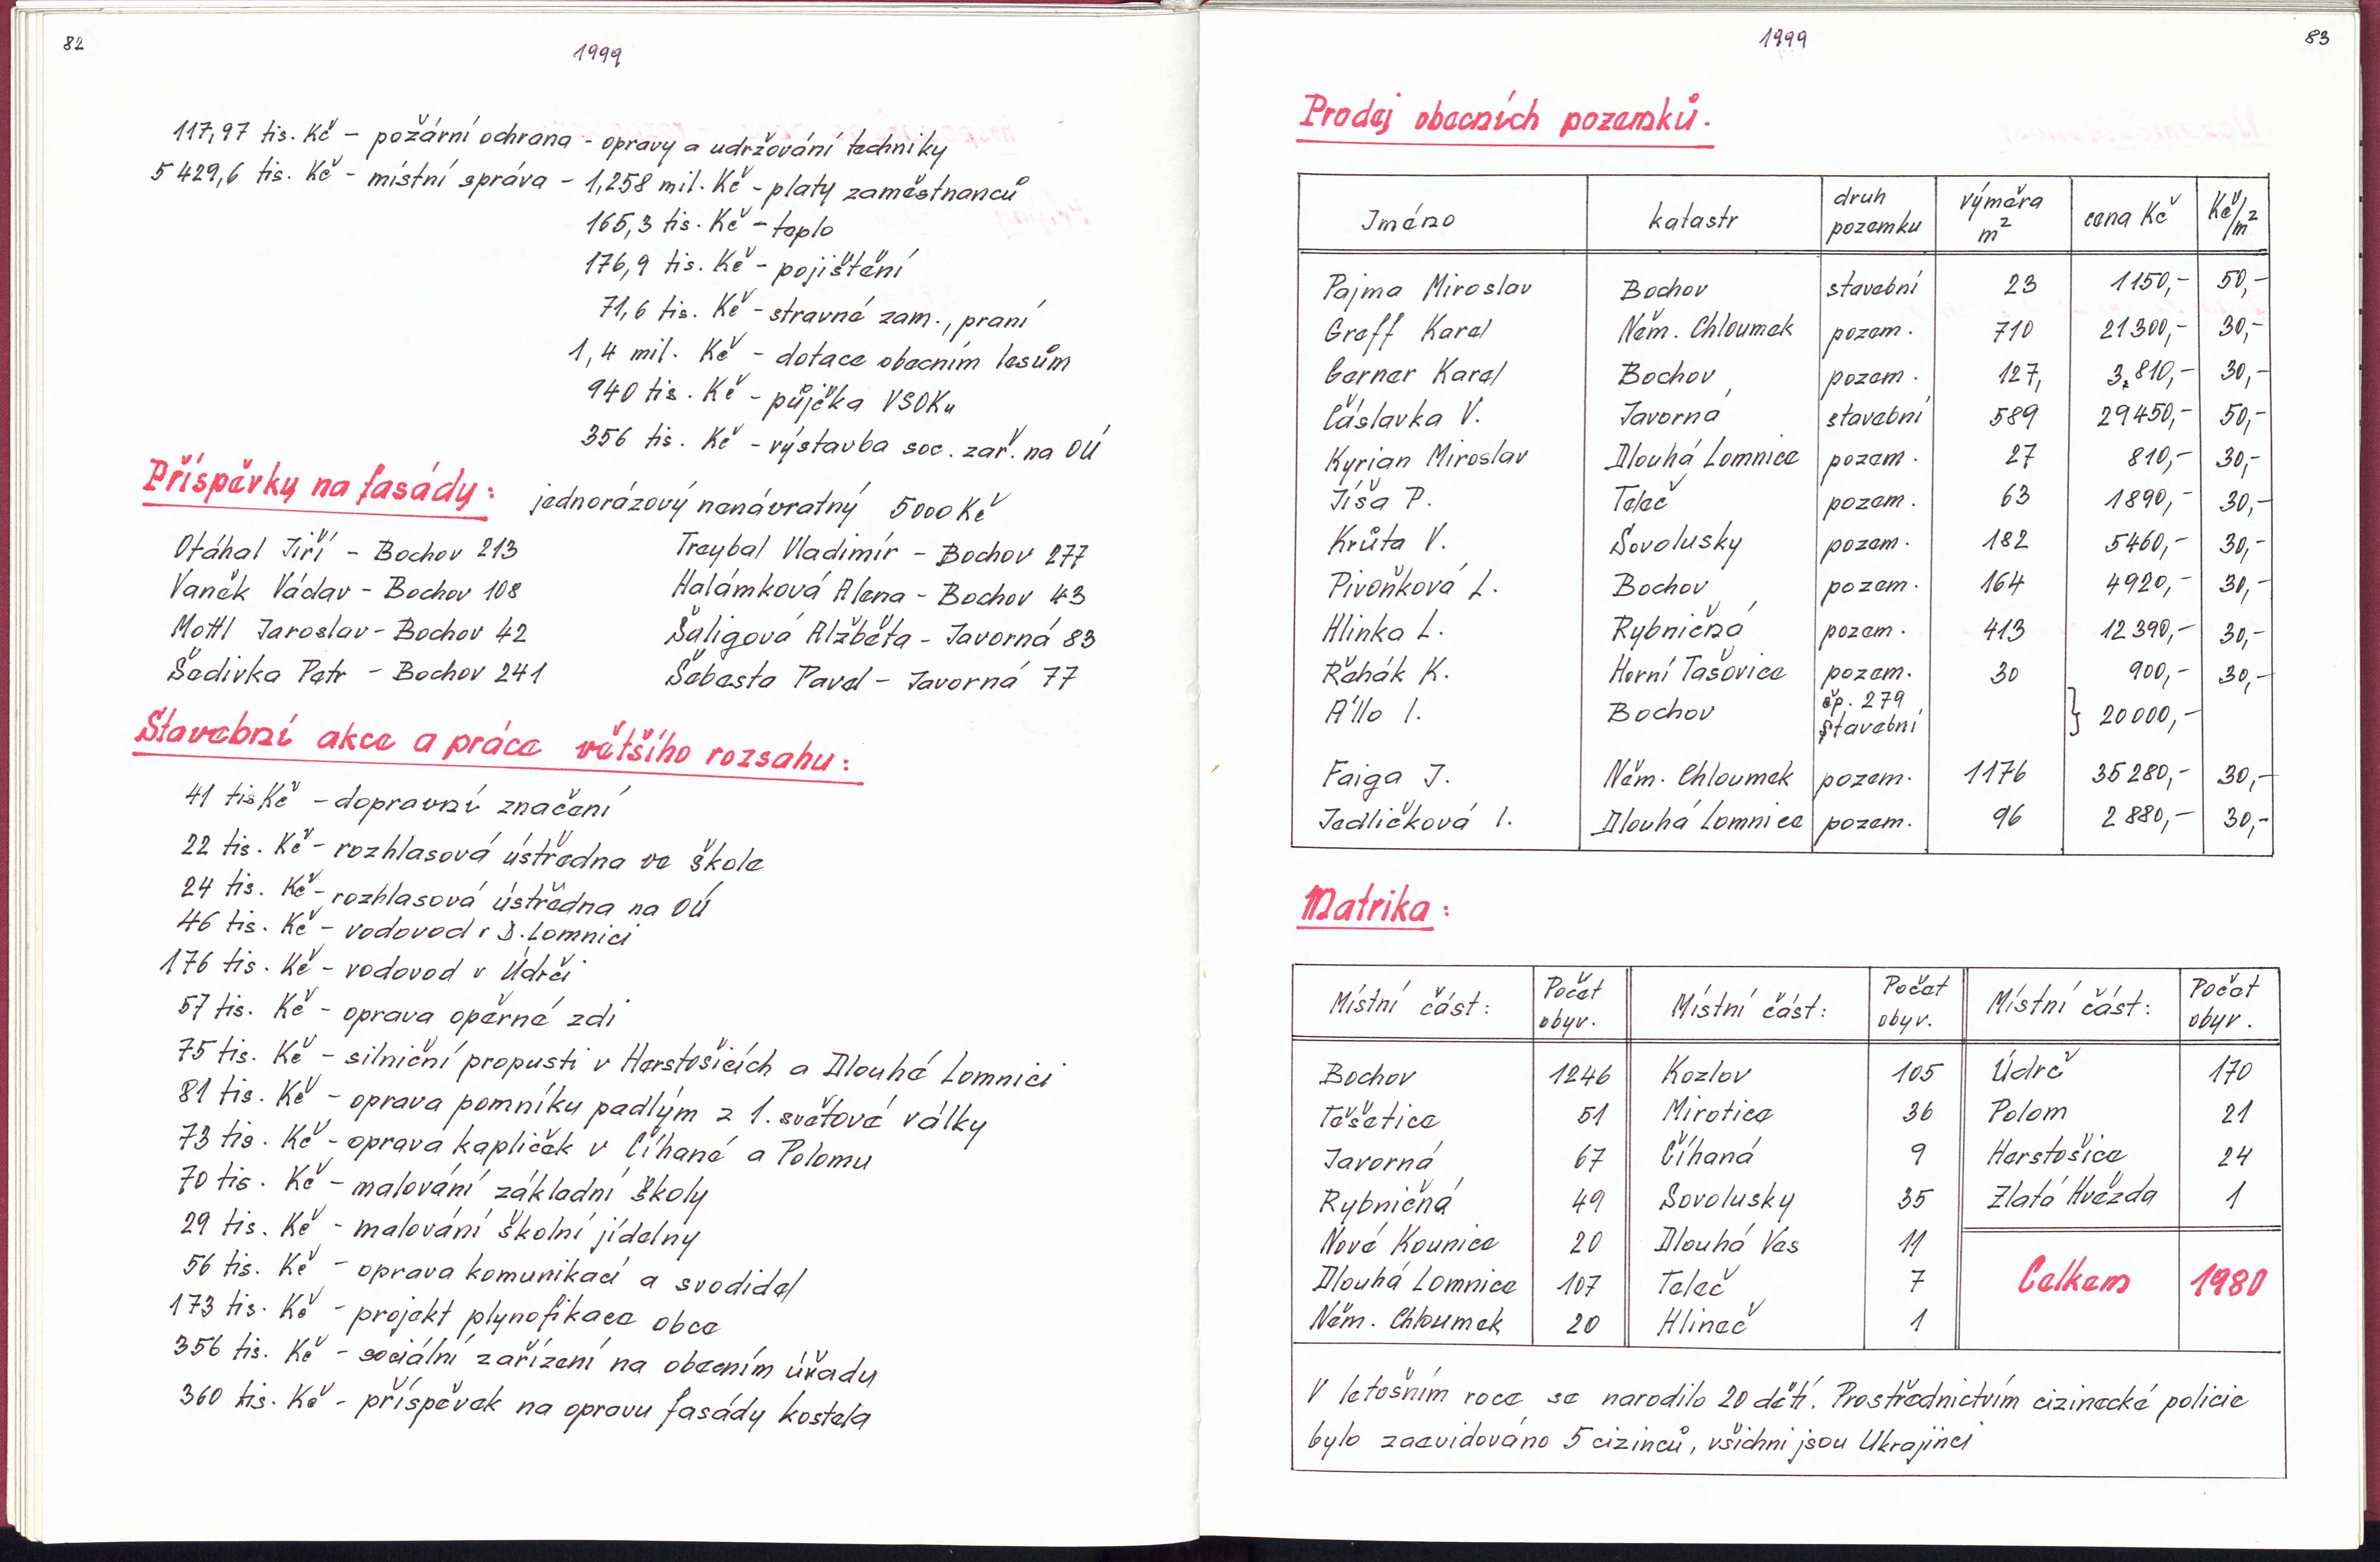 82
1999
117,97 tis. Kč – požární ochrana - opravy a udržování techniky
5 429,6 tis. Kč - místní správa - 1,258 mil. Kč - platy zaměstnanců
165,3 tis. Kč - teplo
176,9 tis. Kč - pojištění
71,6 tis. Kč - stravné zam., praní
1,4 mil. Kč - dotace obecním lesům
940 tis. Kč - půjčka VSOKu
356 tis. Kč - výstavba soc. zař. na OÚ
Příspěvky na fasády: jednorázový nenávratný 5000 Kč
Otáhal Jiří - Bochov 213 Treybal Vladimír - Bochov 277
Vaněk Václav - Bochov 108 Halámková Alena - Bochov 43
Mottl Jaroslav - Bochov 42 Šaligová Alžběta - Javorná 83
Šedivka Petr - Bochov 241 Šebesta Pavel - Javorná 77
Stavební akce a práce většího rozsahu:
41 tis Kč - dopravní značení
22 tis. Kč - rozhlasová ústředna ve škole
24 tis. Kč - rozhlasová ústředna na OÚ
46 tis. Kč - vodovod v D. Lomnici
176 tis. Kč - vodovod v Údrči
57 tis. Kč - oprava opěrné zdi
75 tis. Kč - silniční propusti v Herstošicích a Dlouhé Lomnici
81 tis. Kč - oprava pomníku padlým z 1. světové války
73 tis. Kč - oprava kapliček v Číhané a Polomu
70 tis. Kč - malování základní školy
29 tis. Kč - malování školní jídelny
56 tis. Kč - oprava komunikací a svodidel
173 tis. Kč - projekt plynofikace obce
356 tis. Kč - sociální zařízení na obecním úřadu
360 tis. Kč - příspěvek na opravu fasády kostela
1999
83
Prodej obecních pozemků.
Jméno katastr druh pozemku výměra m² cena Kč Kč/m²
Pajma Miroslav Bochov stavební 23 1150,- 50,-
Greff Karel Něm. Chloumek pozem. 710 21300,- 30,-
Gerner Karel Bochov pozem. 127, 3.810,- 30,-
Čáslavka V. Javorná stavební 589 29450,- 50,-
Kyrian Miroslav Dlouhá Lomnice pozem. 27 810,- 30,-
Jíša P. Teleč pozem. 63 1890,- 30,-
Krůta V. Sovolusky pozem. 182 5460,- 30,-
Pivoňková L. Bochov pozem. 164 4920,- 30,-
Hlinka L. Rybničná pozem. 413 12390,- 30,-
Řehák K. Horní Tašovice pozem. 30 900,- 30,-
Állo I. Bochov čp. 279 stavební } 20000,-
Faiga J. Něm. Chloumek pozem. 1176 35280,- 30,-
Jedličková I. Dlouhá Lomnice pozem. 96 2880,- 30,-
Matrika:
Místní část: Počet obyv. Místní část: Počet obyv. Místní část: Počet obyv.
Bochov 1246 Kozlov 105 Údrč 170
Těšetice 51 Mirotice 36 Polom 21
Javorná 67 Číhaná 9 Herstošice 24
Rybničná 49 Sovolusky 35 Zlatá Hvězda 1
Nové Kounice 20 Dlouhá Ves 11
Dlouhá Lomnice 107 Teleč 7 Celkem 1980
Něm. Chloumek 20 Hlineč 1
V letošním roce se narodilo 20 dětí. Prostřednictvím cizinecké policie
bylo zaevidováno 5 cizinců, všichni jsou Ukrajinci